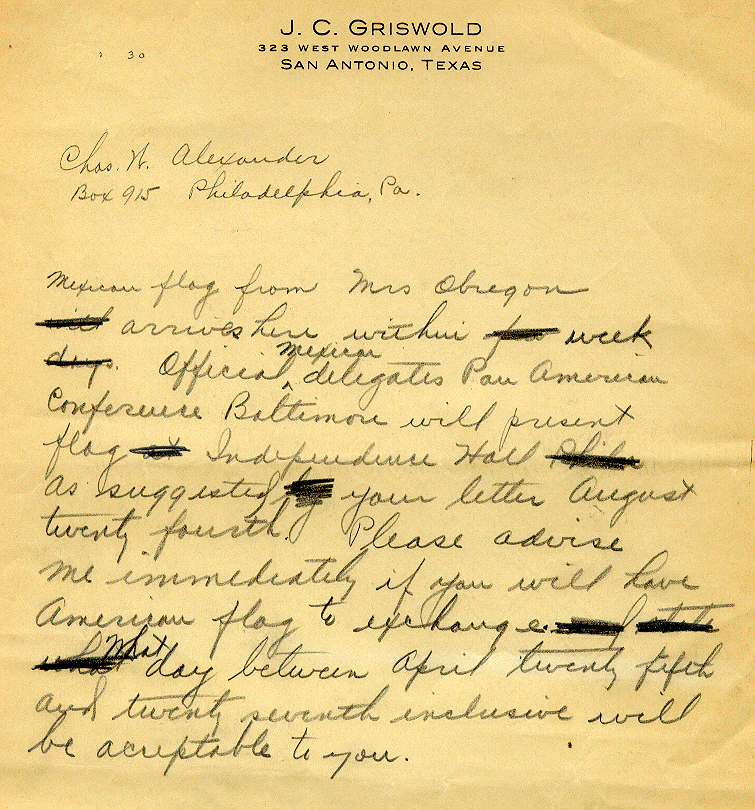 J. C. GRISWOLD
323 WEST WOODLAWN AVENUE
SAN ANTONIO, TEXAS
30
Chas. W. Alexander
Box 915 Philadelphia, Pa.
Mexican flag from Mrs Obregon
will arrives here within few week
days. Official Mexican delegates Pan American
Conference Baltimore will present
flag at Independence Hall Phila
as suggested by your letter August
twenty fourth. Please advise
me immediately if you will have
American flag to exchange. and state
what What day between April twenty fifth
and twenty seventh inclusive will
be acceptable to you.